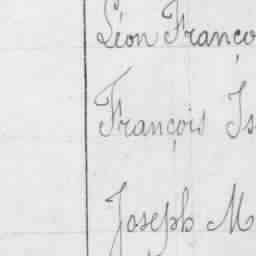 Léon Franço
François Is
Joseph M